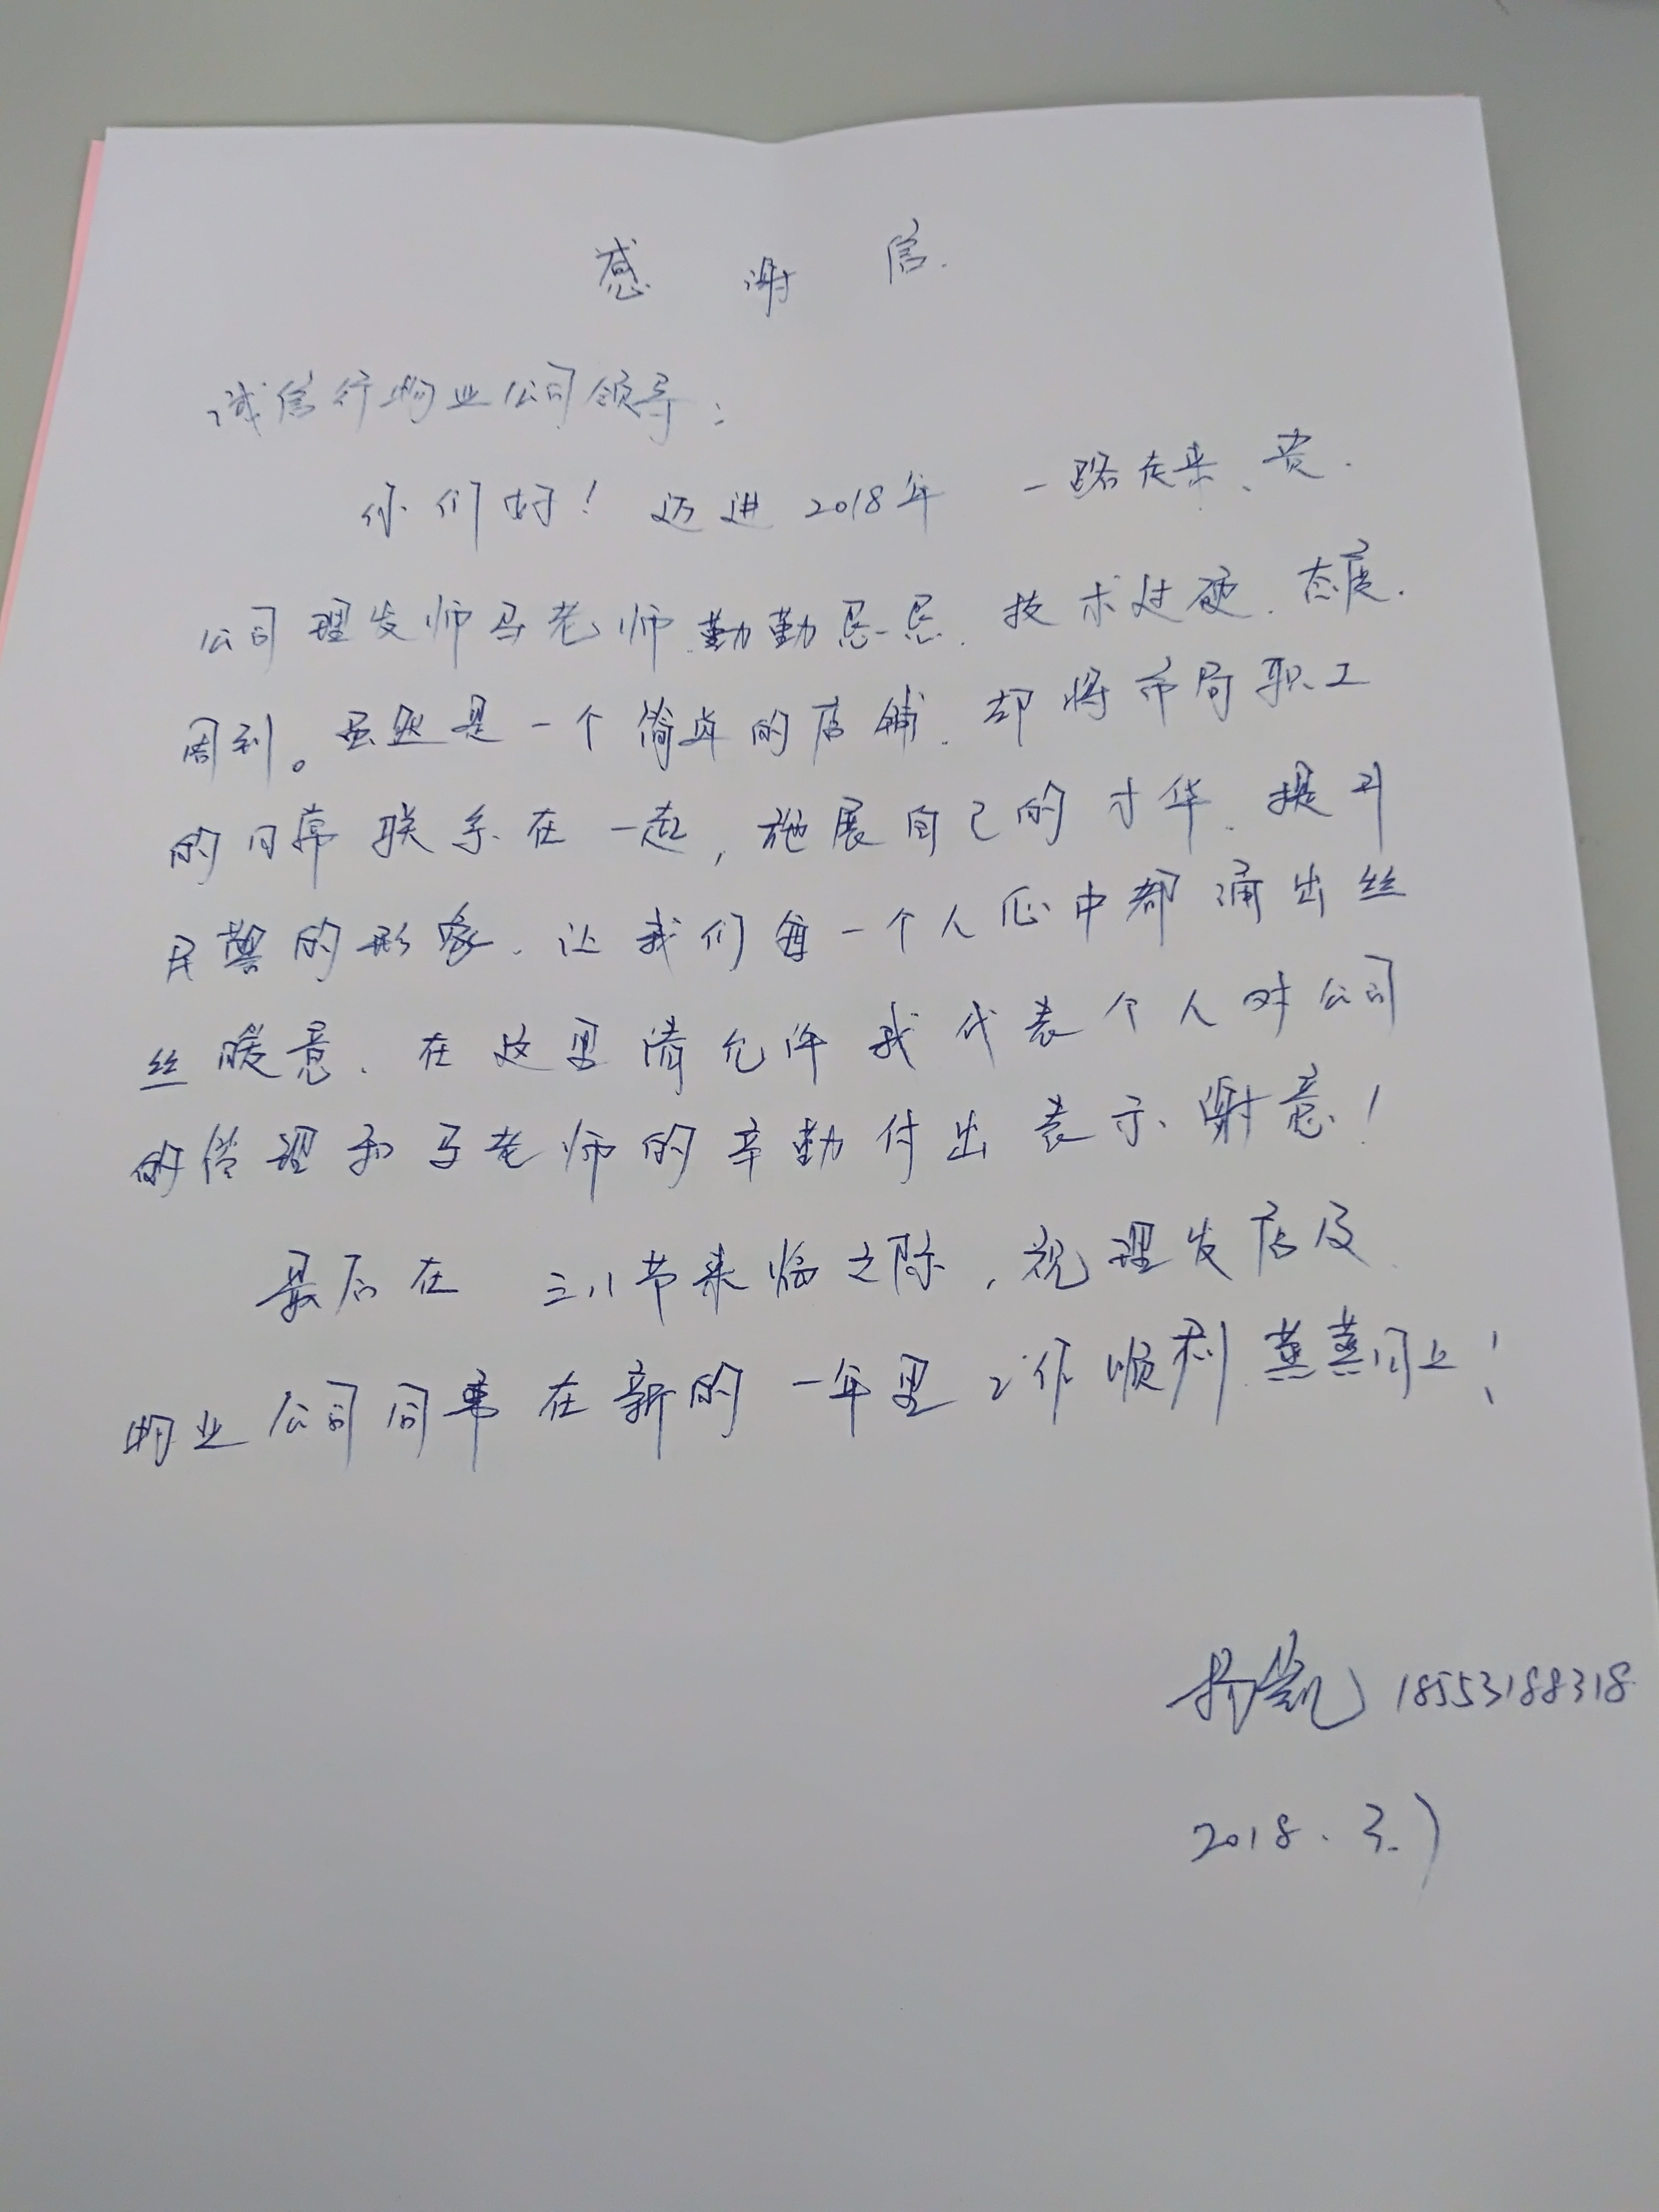 感谢信.
诚信行物业公司领导:
你们好! 迈进2018年 一路走来、贵.
公司理发师马老师勤勤恳恳.技术过硬.态度.
周到。虽然是一个简单的店铺.却将市局职工
的日常联系在一起,施展自己的才华.提升
民警的形象.让我们每一个人心中都涌出丝
丝暖意.在这里请允许我代表个人对公司
的管理和马老师的辛勤付出表示谢意!
最后在 三八节来临之际,祝理发店及
物业公司同事在新的一年里工作顺利.蒸蒸日上!
18553188318
2018.3.7